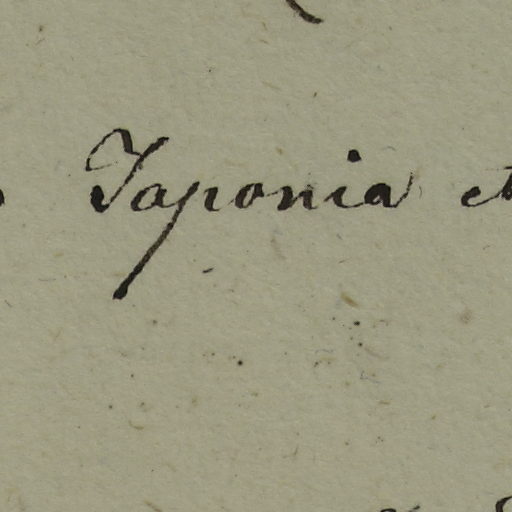 Japonia et